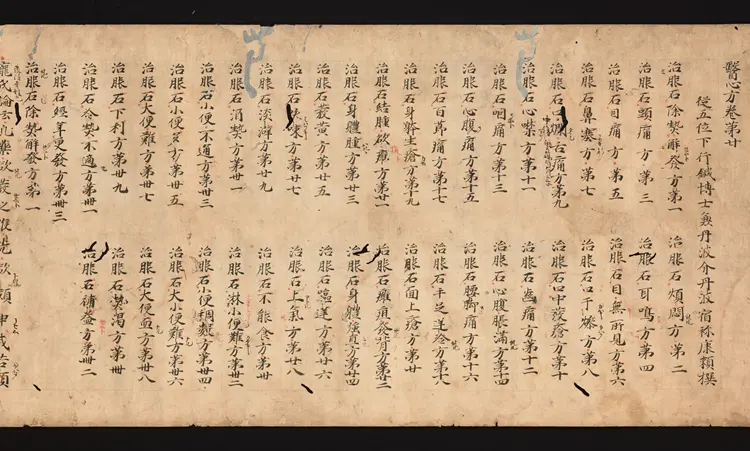 醫心方卷第廿
從五位下行鍼博士兼丹波介丹波宿祢康頼撰
治服石除熱解發方第一　治服石煩悶方第二
治服石頭痛方第三　治服石耳鳴方第四
治服石目痛方第五　治服石目無所見方第六
治服石鼻塞方第七　治服石口干燥方第八
治服石口咽舌痛方第九　治服石口中發瘡方第十
治服石心噤方第十一　治服石痛方第十二
治服石咽痛方第十三　治服石心腹脹滿方第十四
治服石心腹痛方第十五　治服石腰脚痛方第十六
治服石百節痛方第十七　治服石手足逆冷方第十八
治服石身體生瘡方第十九　治服石面上瘡方第廿
治服石結腫欲癰方第廿一　治服石癰疽發背方第廿二
治服石身體腫方第廿三　治服石身體強直方第廿四
治服石發黃方第廿五　治服石嘔逆方第廿六
治服石嗽方第廿七　治服石上氣方第廿八
治服石淡澼方第廿九　治服石不能食方第卅
治服石消熱方第卅一　治服石淋小便難方第卅二
治服石小便不通方第卅三　治服石小便稠數方第卅四
治服石小便多方第卅五　治服石大小便難方第卅六
治服石大便難方第卅七　治服石大便血方第卅八
治服石下利方第卅九　治服石熱渴方第卌
治服石冷熱不適方第卌一　治服石補益方第卌二
治服石經年更發方第卌三
治服石除熱解發方第一
龐氏論云凡藥欲發之候先欲頻申或苦頭